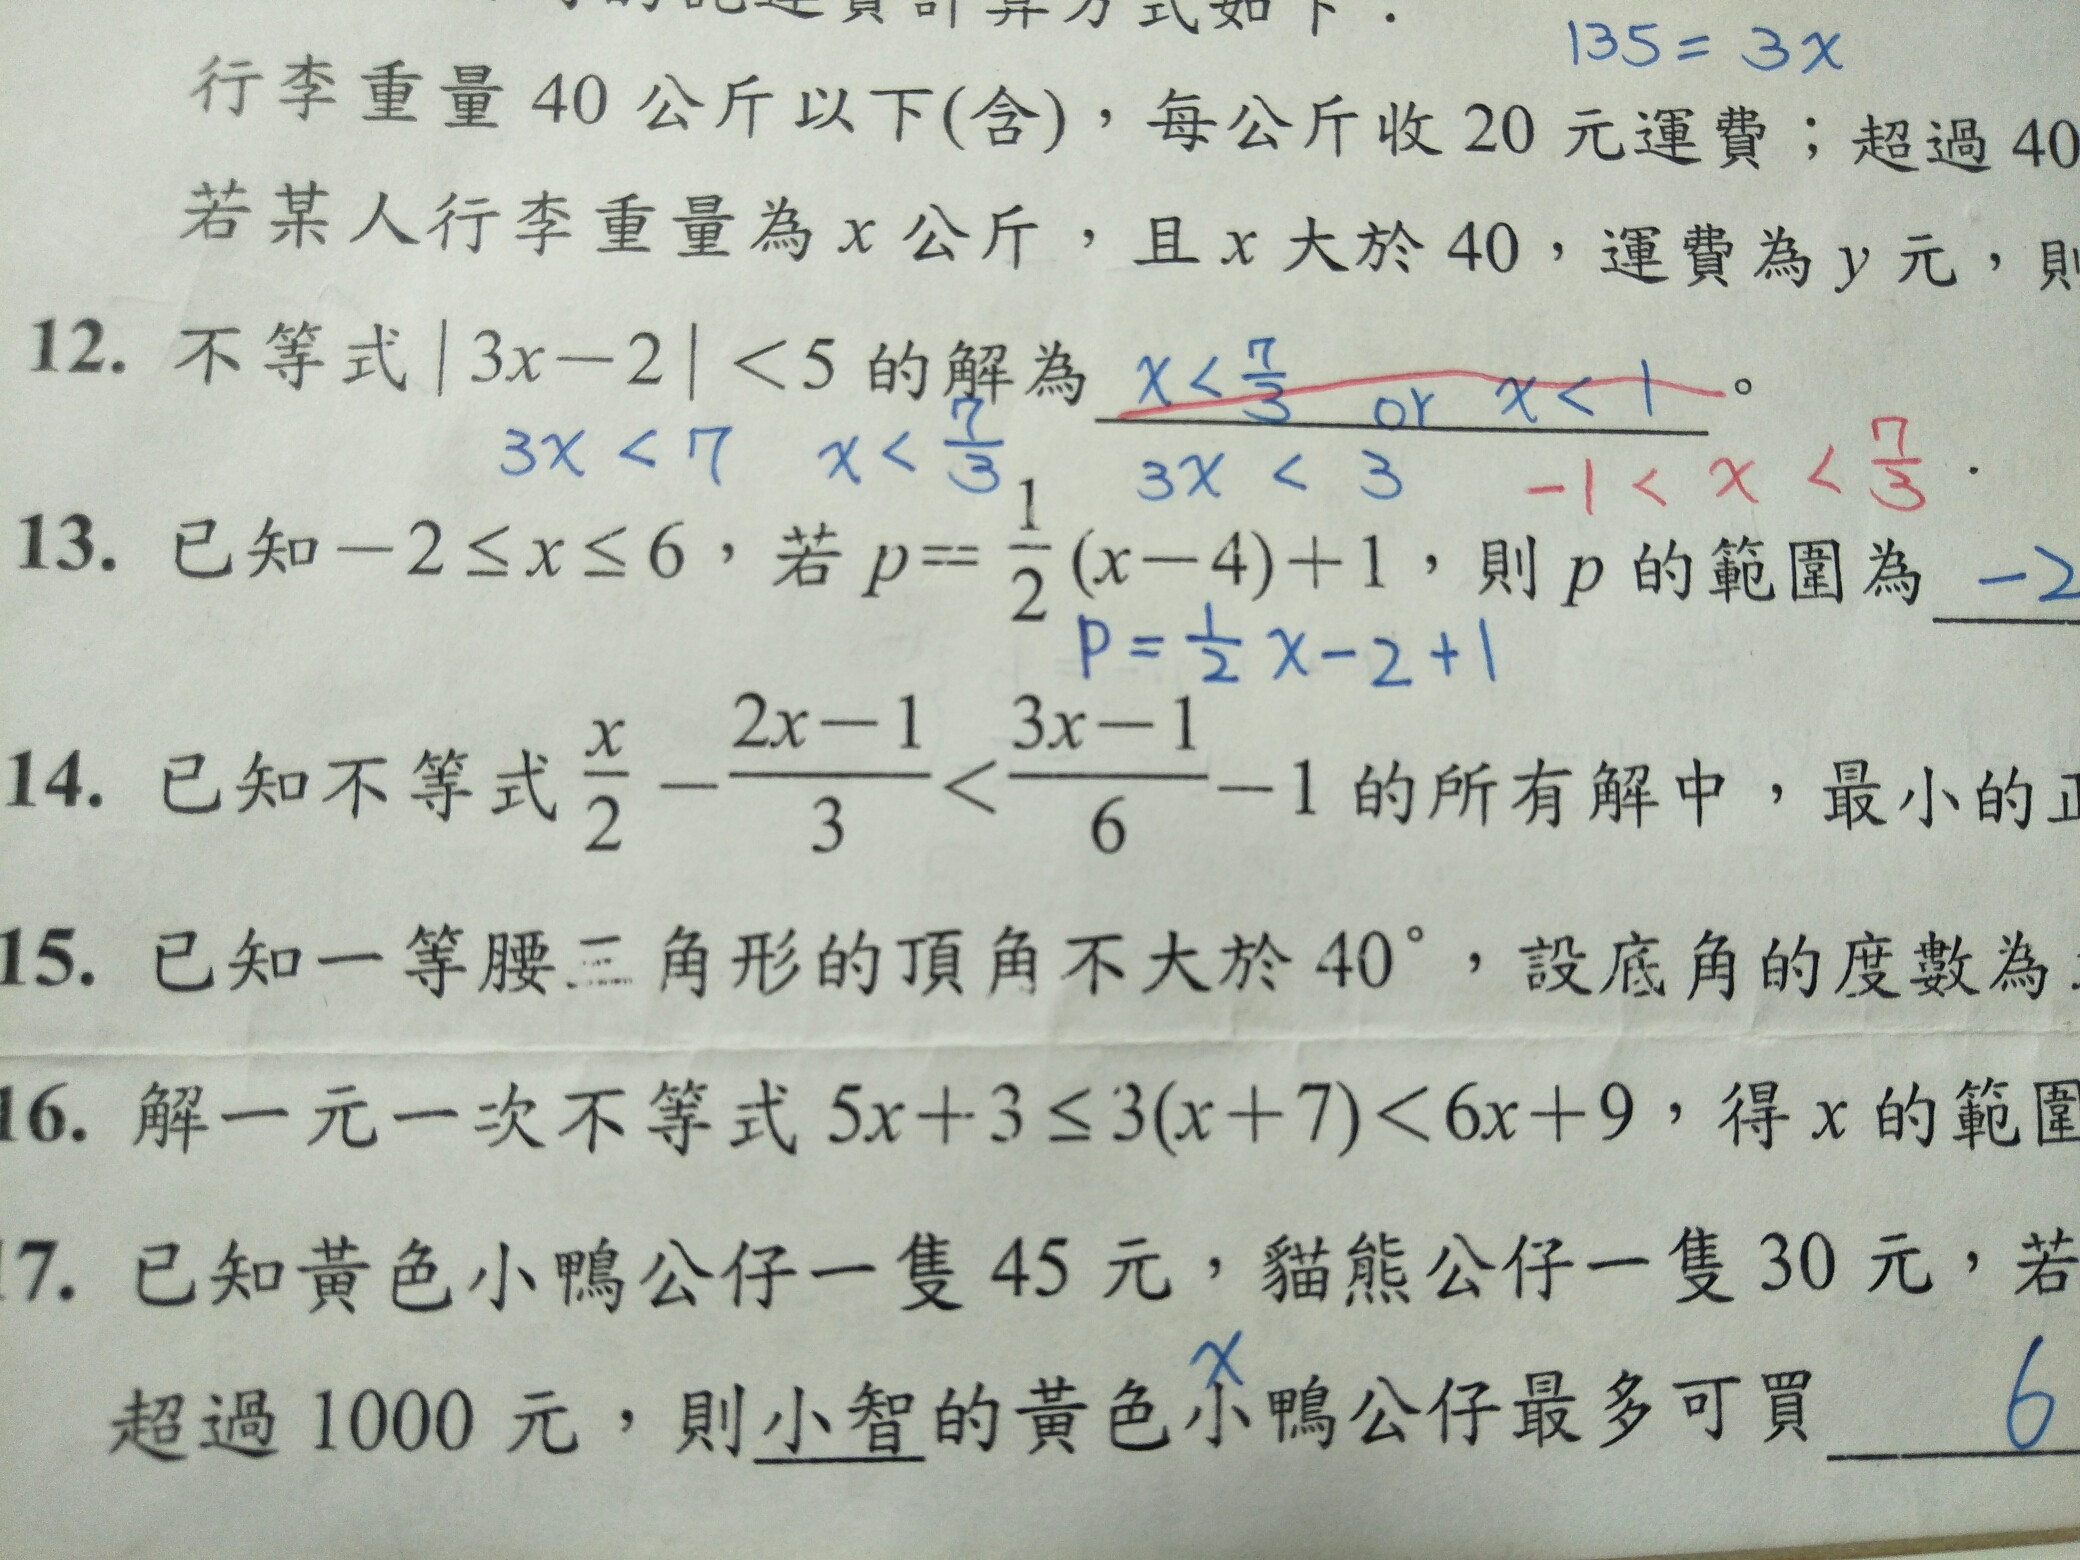 運費計算方式如下：
135 = 3x
行李重量 40 公斤以下(含)，每公斤收 20 元運費；超過 40
若某人行李重量為 x 公斤，且 x 大於 40，運費為 y 元，則
12. 不等式 | 3x－2 | ＜5 的解為 x < 7/3 or x < 1 。
3x < 7 x < 7/3 3x < 3 -1 < x < 7/3 .
13. 已知－2 ≤ x ≤ 6，若 p= 1/2 (x－4)＋1，則 p 的範圍為 -2
P = 1/2 x - 2 + 1
14. 已知不等式 x/2 － (2x－1)/3 ＜ (3x－1)/6 －1 的所有解中，最小的正
15. 已知一等腰三角形的頂角不大於 40°，設底角的度數為
16. 解一元一次不等式 5x＋3 ≤ 3(x＋7)＜6x＋9，得 x 的範圍
17. 已知黃色小鴨公仔一隻 45 元，貓熊公仔一隻 30 元，若
x
超過 1000 元，則小智的黃色小鴨公仔最多可買 6